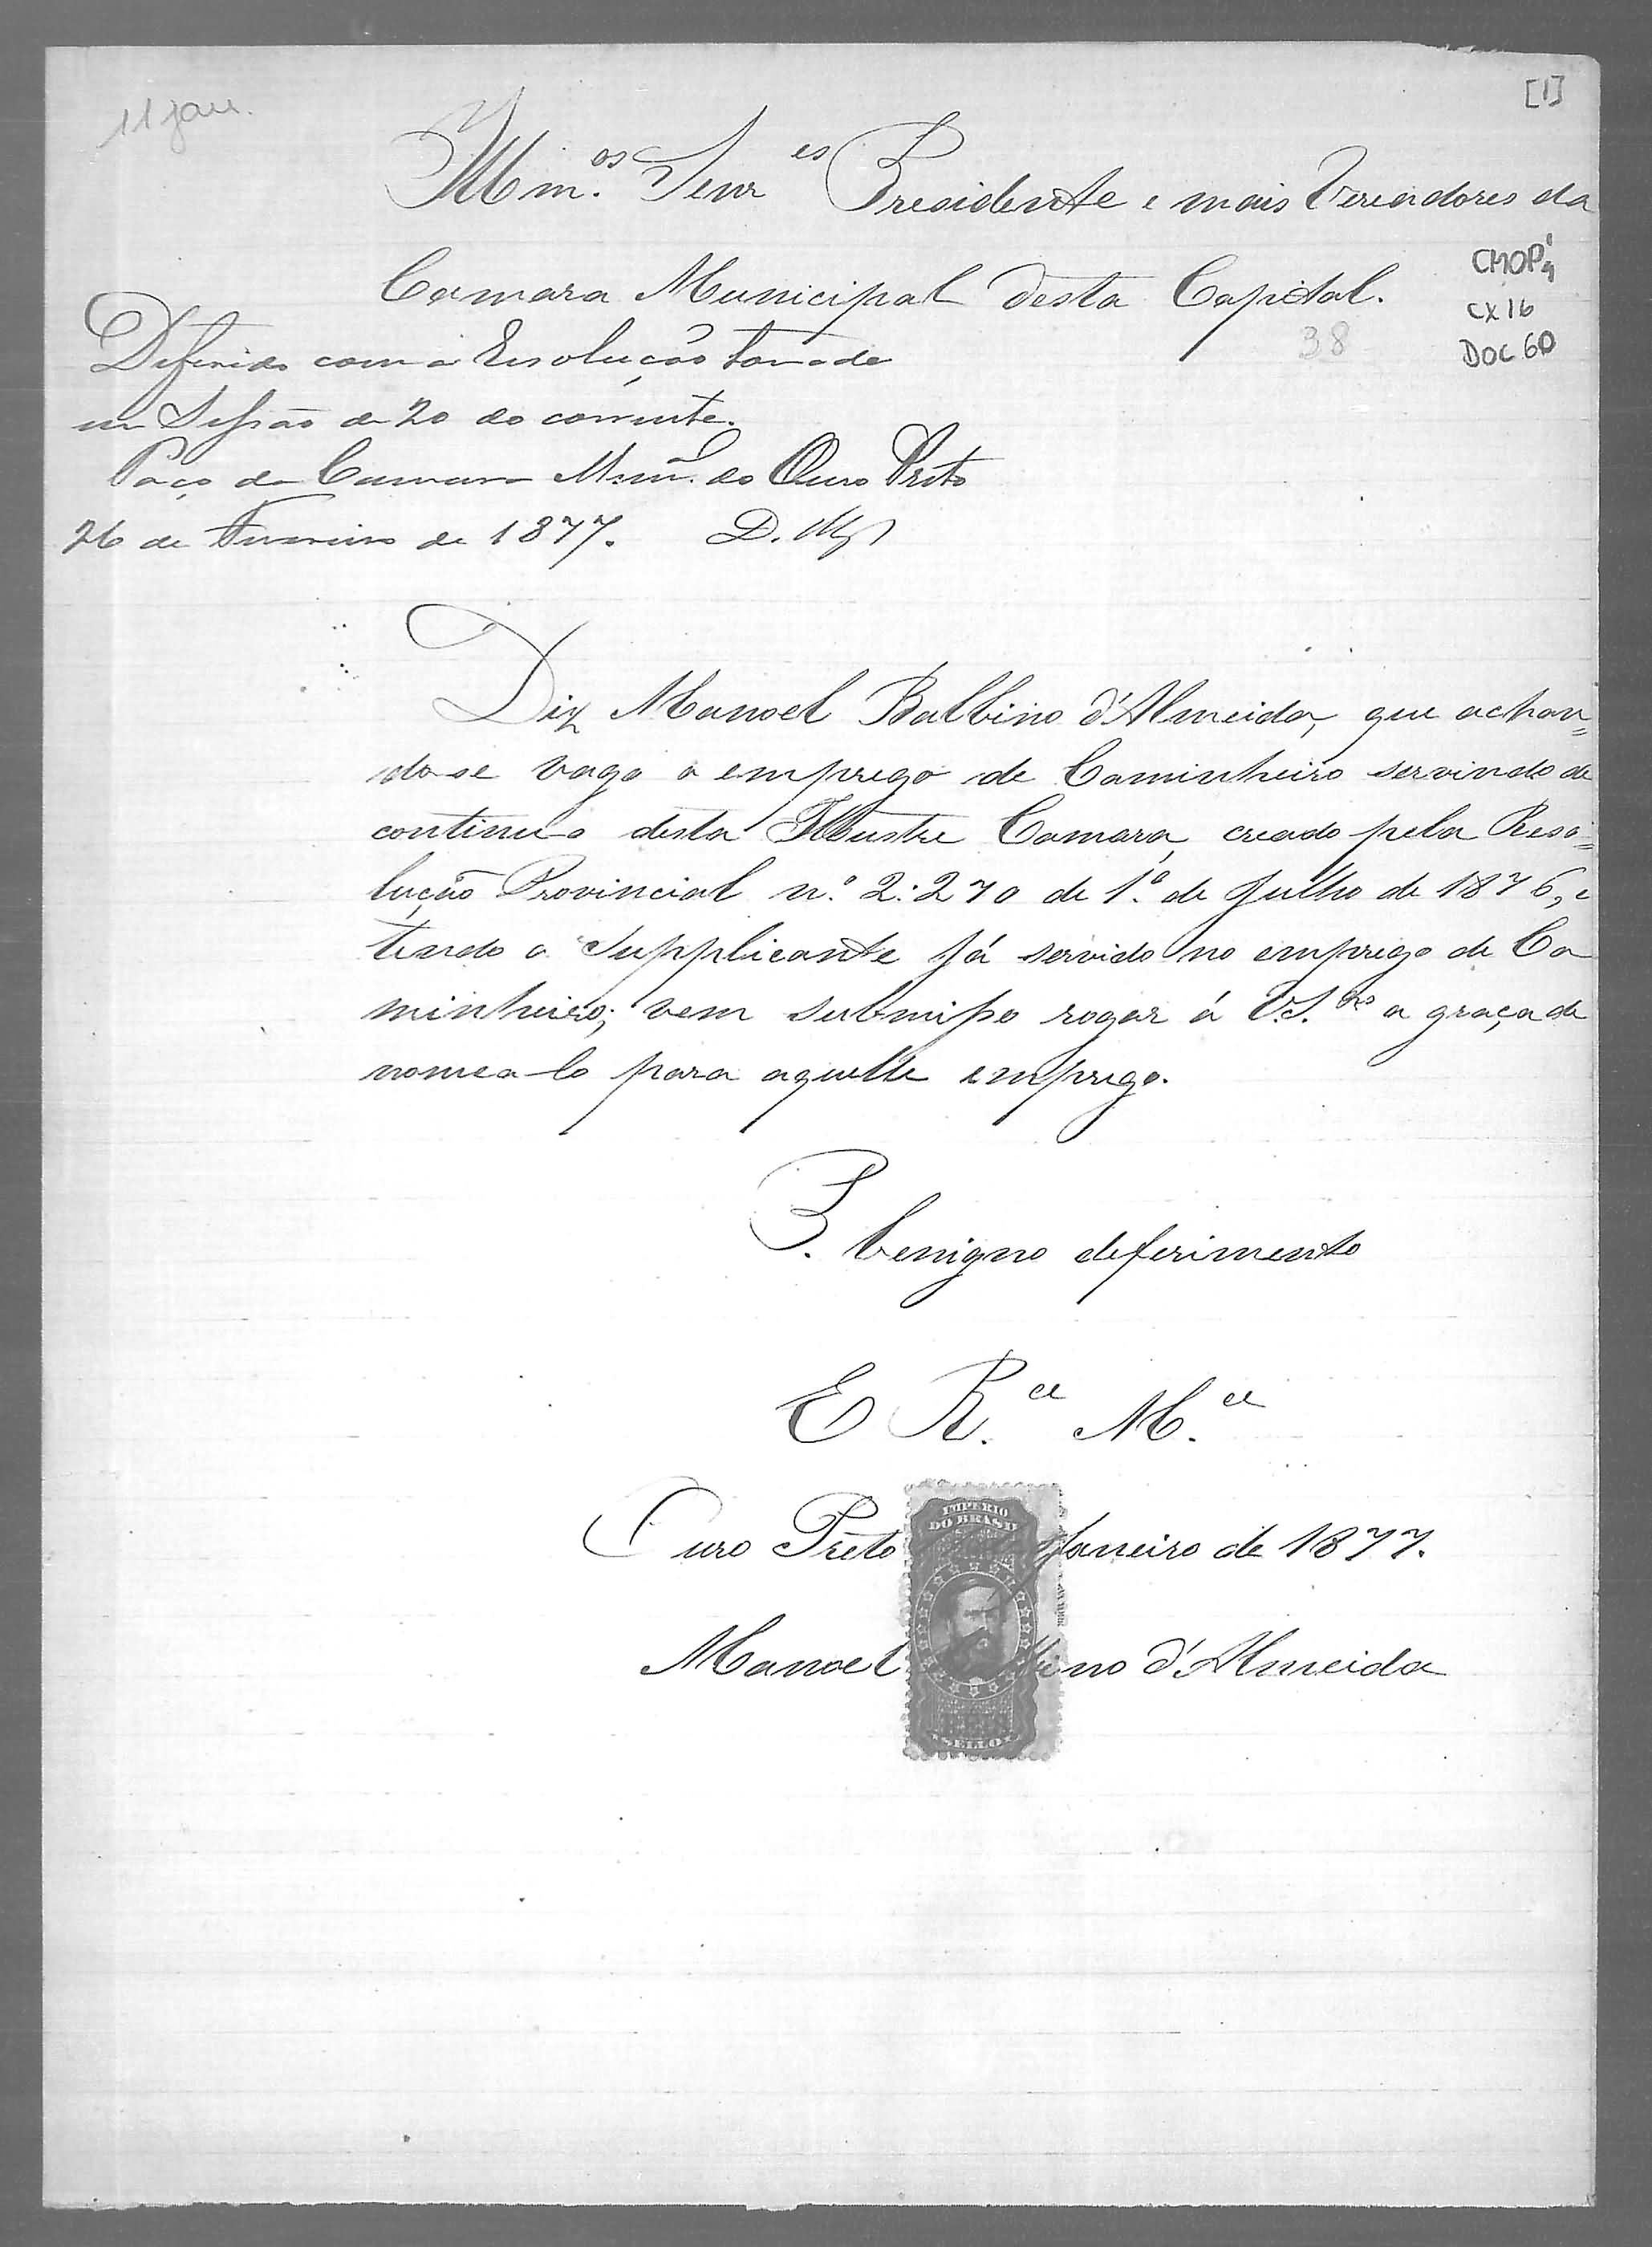 11 jan.
[1]
Illm.os Senr es Presidente e mais Vereadores da
Camara Municipal desta Capital.
CMOP
CX 16
DOC 60
38
Deferido com a Resolução tomada
em Sessão de 20 do corrente.
Paço da Camara Mun. do Ouro Preto
26 de Fevereiro de 1877.
Diz Manoel Balbino d'Almeida, que achan=
do-se vago o emprego de Caminheiro servindo de
continuo desta Illustre Camara, creado pela Reso=
lução Provincial n.º 2:270 de 1.º de Julho de 1876, e
tendo o Supplicante já servido no emprego de Ca
minheiro; vem submisso rogar á V.S.as a graça de
nomea-lo para aquelle emprego.
P. benigno deferimento
E R.ce M.ce
IMPERIO
DO BRASIL
Ouro Preto Janeiro de 1877.
Manoel ino d'Almeida
SELLO